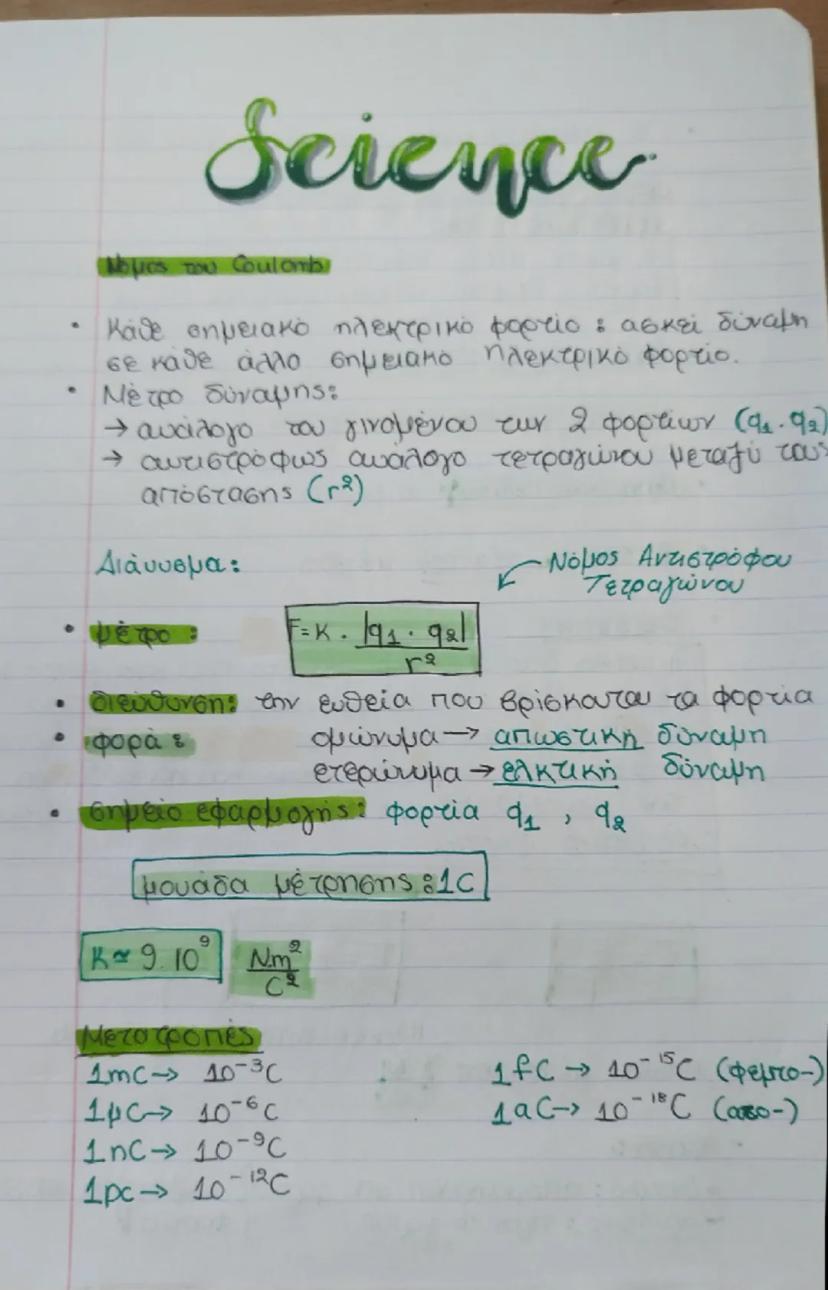 Science
Νόμος του Coulomb
• Κάθε σημειακό ηλεκτρικό φορτίο : ασκεί δύναμη
σε κάθε άλλο σημειακό ηλεκτρικό φορτίο.
• Μέτρο δύναμης:
→ ανάλογο του γινομένου των 2 φορτίων (q₁·q₂)
→ αντιστρόφως ανάλογο τετραγώνου μεταξύ τους
απόστασης (r²)
Διάνυσμα:
Νόμος Αντιστρόφου
Τετραγώνου
• μέτρο : F=K · |q₁ · q₂| / r²
• διεύθυνση: την ευθεία που βρίσκονται τα φορτία
• φορά : ομώνυμα → απωστική δύναμη
ετερώνυμα → ελκτική δύναμη
• σημείο εφαρμογής: φορτία q₁ , q₂
μονάδα μέτρησης :1C
K≃ 9.10⁹ N.m²/C²
Μετατροπές
1mC→ 10⁻³C 1fC → 10⁻¹⁵C (φεμτο-)
1μC→ 10⁻⁶C 1aC→ 10⁻¹⁸C (ατο-)
1nC→ 10⁻⁹C
1pc→ 10⁻¹²C